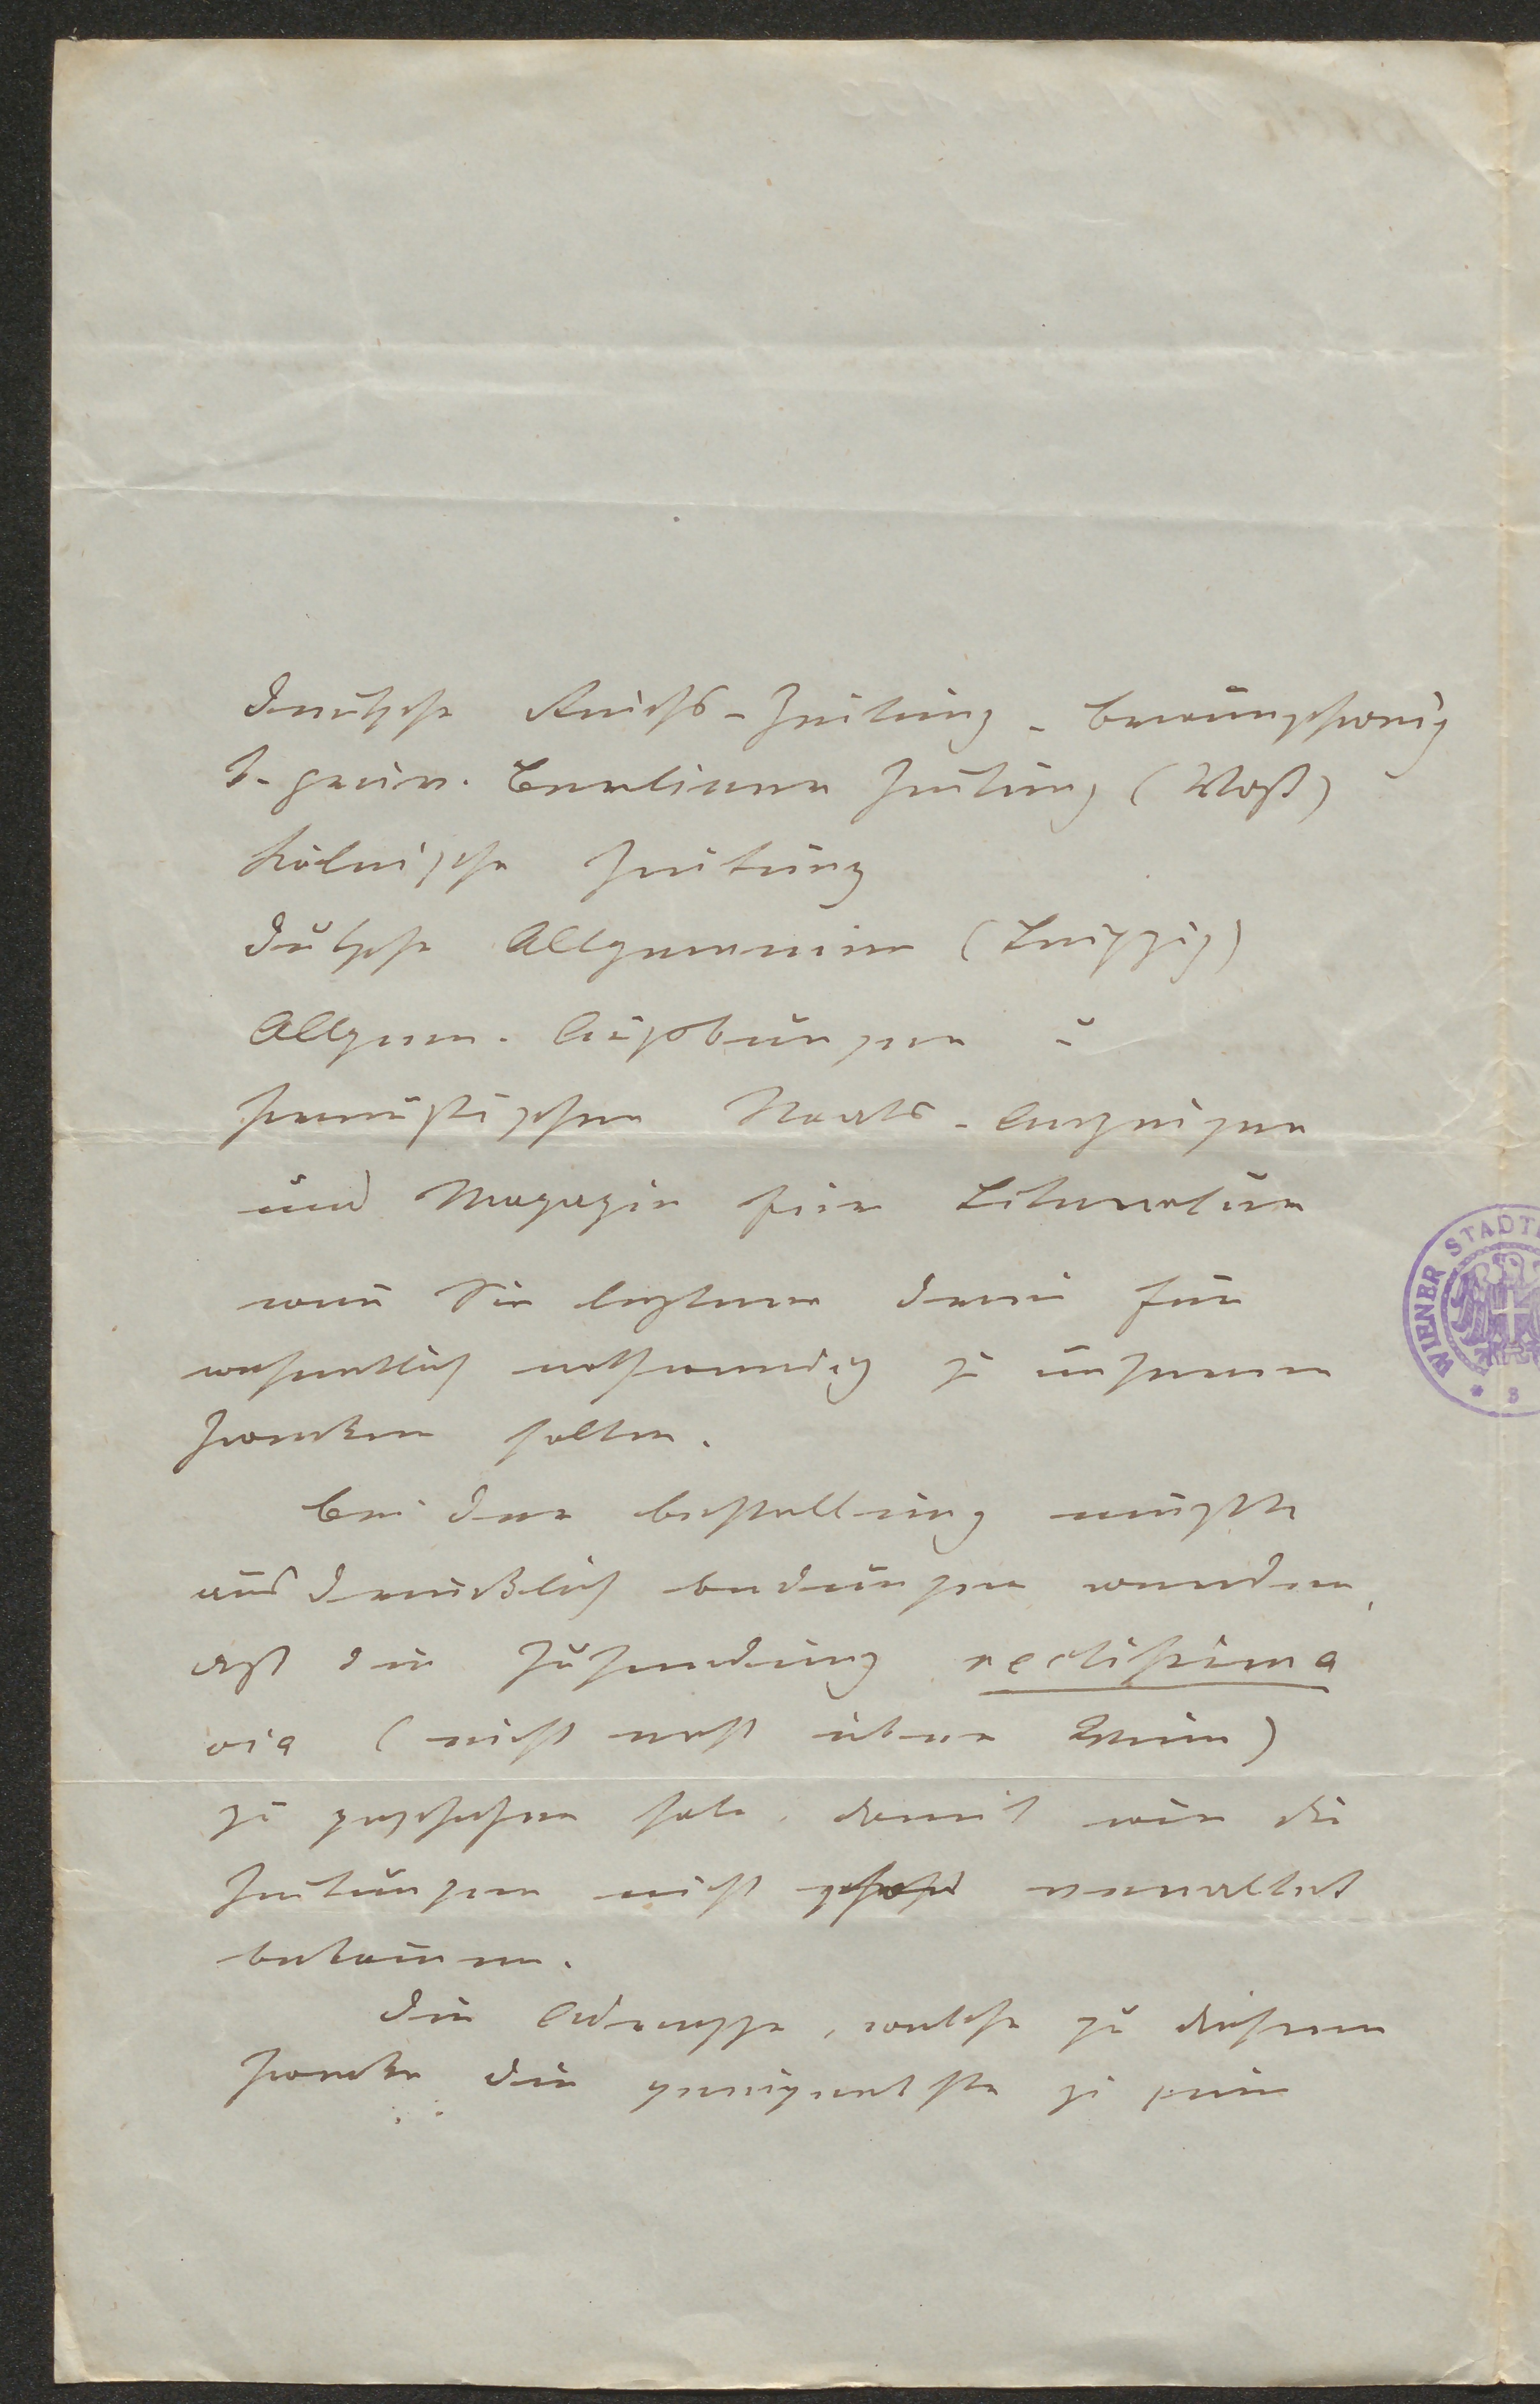 Deutsche Reichs-Zeitung - Braunschweig
Berliner Zeitung (Voß)
Kölnische Zeitung
Deutsche Allgemeine (Leipzig)
Allgem. Augsburger u
Preußischen Staats-Anzeiger
und Magazin für Literatur
wenn Sie letztere denn für
wesentlich nothwendig zu unserem
Zwecken halten.
Bei der Bestellung müßte
ausdrücklich bedungen werden,
daß die Zusendung rectissima
via (nicht erst über Wien)
zu geschehen habe, damit wir die
Zeitungen nicht veraltet
bekommen.
Die Adresse, welche zu diesem
Zwecke die geeignetste zu sein
WIENER STADT